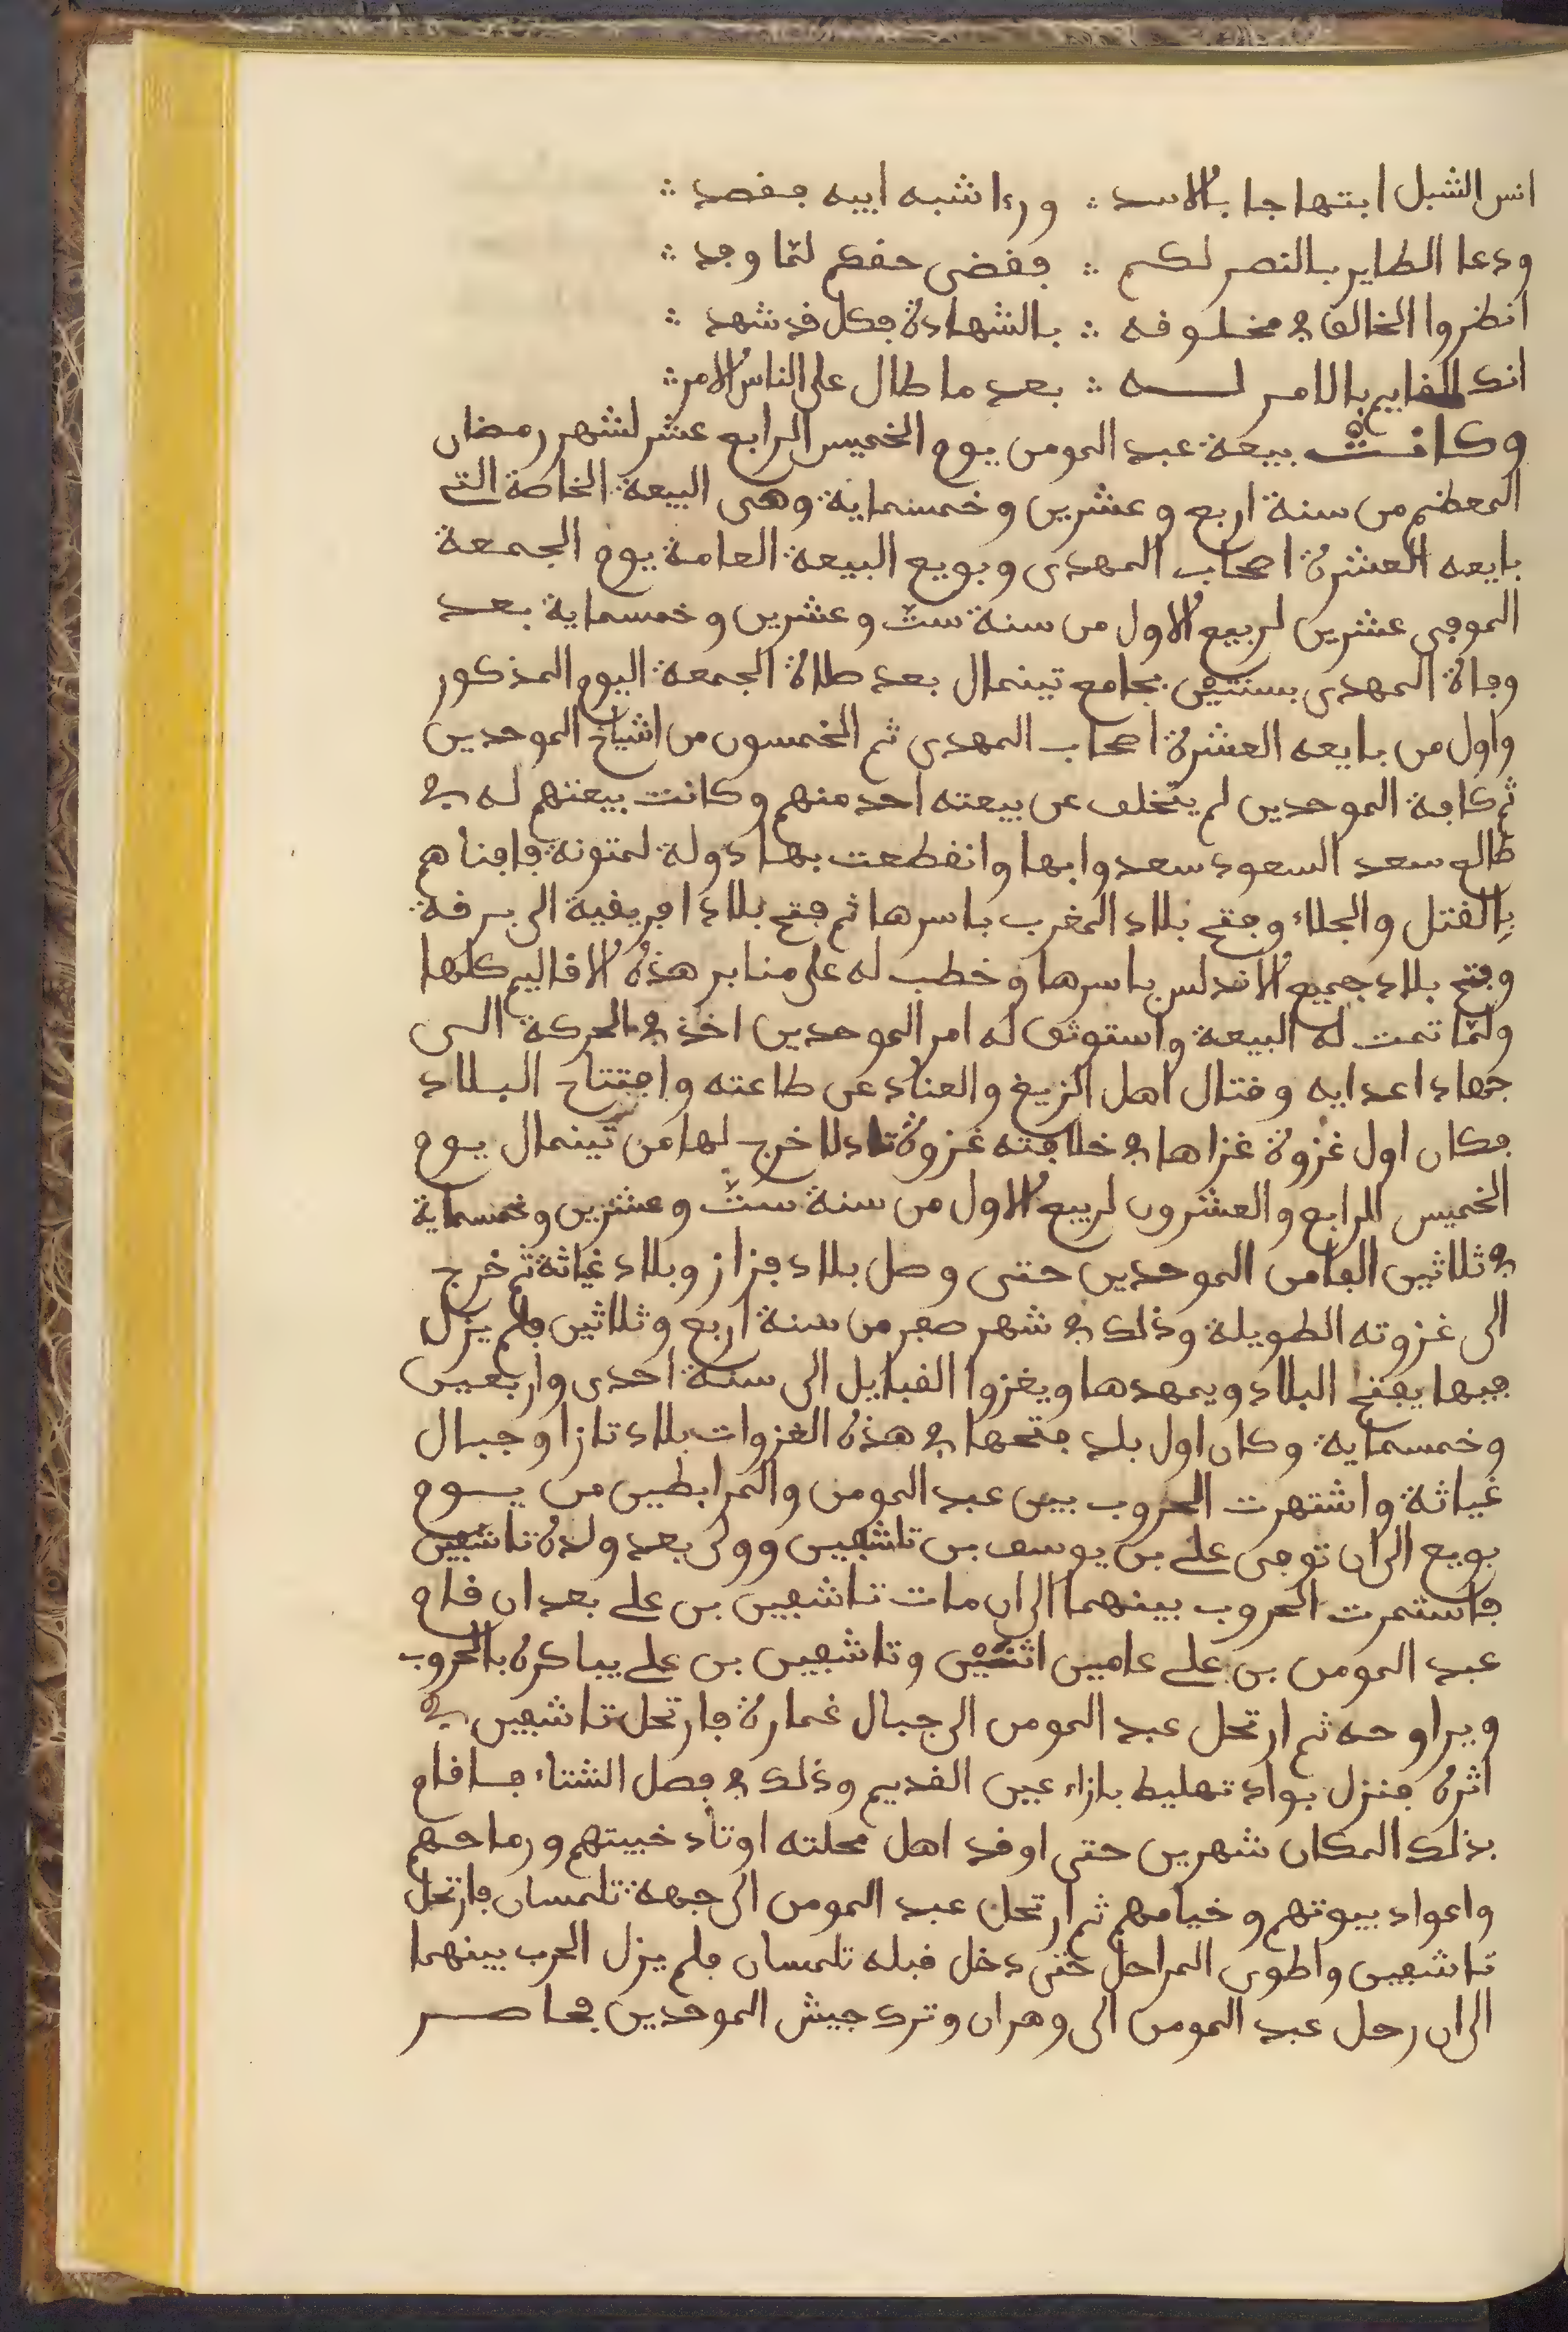 انس الشبل ابتهاجا بالاسد ∴ ورءا شبه ابيه فقصد ∴
ودعا الطاير بالنصر لكم ∴ فقضى حقكم لمّا وفد ∴
انظروا الخالق في مخلوقه ∴ بالشهادة فكل قد شهد ∴
انك القايم بالامر له ∴ بعد ما طال على الناس الامر ∴
وكانت بيعة عبد المومن يوم الخميس الرابع عشر لشهر رمضان
المعظم من سنة اربع وعشرين وخمسماية وهى البيعة الخاصة التي
بايعه العشرة اصحاب المهدى وبويع البيعة العامة يوم الجمعة
الموفى عشرين لربيع الاول من سنة ستّ وعشرين وخمسماية بعد
وفاة المهدى بسنتين بجامع تينمال بعد صلاة الجمعة اليوم المذكور
واول من بايعه العشرة اصحاب المهدى ثم الخمسون من اشياخ الموحدين
ثم كافة الموحدين لم يتخلف عن بيعته احد منهم وكانت بيعتهم له في
طالع سعد السعود سعدوا بها وانقطعت بها دولة لمتونة فافناهم
بالقتل والجلاء وفتح بلاد المغرب باسرها ثم فتح بلاد افريقية الى برقة
وفتح بلاد جميع الاندلس باسرها وخطب له على منابر هذه الاقاليم كلها
ولمّا تمت له البيعة واستوثق له امر الموحدين اخذ في الحركة الى
جهاد اعدايه وقتال اهل الزيغ والعناد عن طاعته وافتتاح البلاد
فكان اول غزوة غزاها في خلافته غزوة تادلا خرج لها من تينمال يوم
الخميس الرابع والعشرون لربيع الاول من سنة ستّ وعشرين وخمسماية
في ثلاثين الفا من الموحدين حتى وصل بلاد فزاز وبلاد غياثة ثم خرج
الى غزوته الطويلة وذلك في شهر صفر من سنة اربع وثلاثين فلم يزل
فيها يفتح البلاد ويمهدها ويغزوا القبايل الى سنة احدى واربعين
وخمسماية وكان اول بلد فتحها في هذه الغزوات بلاد تازا وجبال
غياثة واشتهرت الحروب بين عبد المومن والمرابطين من يوم
بويع الى ان توفى على بن يوسف بن تاشفين وولى بعد ولده تاشفين
فاستمرت الحروب بينهما الى ان مات تاشفين بن على بعد ان قام
عبد المومن بن على عامين اثنين وتاشفين بن على يباكره بالحروب
ويراوحه ثم ارتحل عبد المومن الى جبال غمارة فارتحل تاشفين في
اثره فنزل بواد تهليط بازاء عين القديم وذلك في فصل الشتاء فاقام
بذلك المكان شهرين حتى اوقد اهل محلته اوتاد خبيتهم ورماحهم
واعواد بيوتهم وخيامهم ثم ارتحل عبد المومن الى جهة تلمسان فارتحل
تاشفين واطوى المراحل حتى دخل قبله تلمسان فلم يزل الحرب بينهما
الى ان رحل عبد المومن الى وهران وترك جيش الموحدين فحاصر